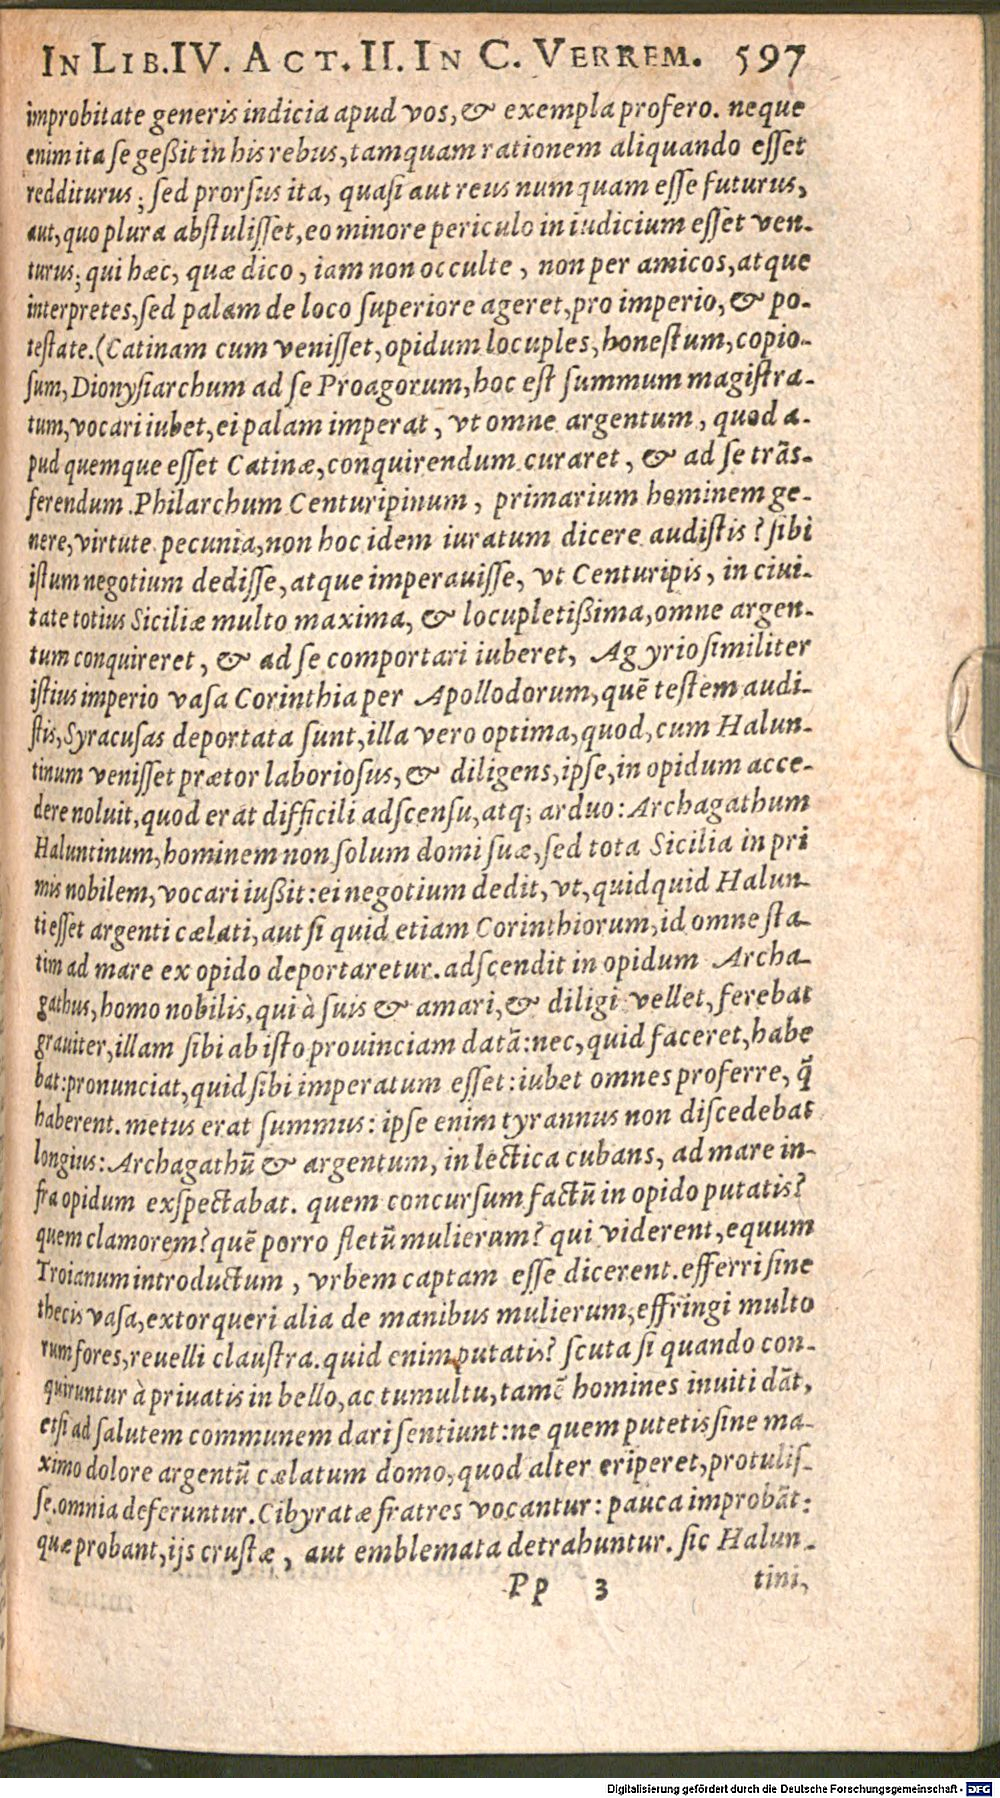 IN LIB.IV. ACT.II. IN C. VERREM. 597
improbitate generis indicia apud vos, & exempla profero. neque
enim ita se geßit in his rebus, tamquam rationem aliquando esset
redditurus; sed prorsus ita, quasi aut reus numquam esse futurus,
aut, quo plura abstulisset, eo minore periculo in iudicium esset ven-
turus; qui hæc, quæ dico, iam non occulte, non per amicos, atque
interpretes, sed palam de loco superiore ageret, pro imperio, & po-
testate. (Catinam cum venisset, opidum locuples, honestum, copio-
sum, Dionysiarchum ad se Proagorum, hoc est summum magistra-
tum, vocari iubet, ei palam imperat, vt omne argentum, quod a-
pud quemque esset Catinæ, conquirendum curaret, & ad se trãs-
ferendum. Philarchum Centuripinum, primarium hominem ge-
nere, virtute pecunia, non hoc idem iuratum dicere audistis? sibi
istum negotium dedisse, atque imperauisse, vt Centuripis, in ciui-
tate totius Siciliæ multo maxima, & locupletißima, omne argen-
tum conquireret, & ad se comportari iuberet, Agyrio similiter
istius imperio vasa Corinthia per Apollodorum, quẽ testem audi-
stis, Syracusas deportata sunt, illa vero optima, quod, cum Halun-
tinum venisset prætor laboriosus, & diligens, ipse, in opidum acce-
dere noluit, quod erat difficili adscensu, atq; arduo: Archagathum
Haluntinum, hominem non solum domi suæ, sed tota Sicilia in pri
mis nobilem, vocari iußit: ei negotium dedit, vt, quidquid Halun-
ti esset argenti cælati, aut si quid etiam Corinthiorum, id omne sta-
tim ad mare ex opido deportaretur. adscendit in opidum Archa-
gathus, homo nobilis, qui à suis & amari, & diligi vellet, ferebat
grauiter, illam sibi ab isto prouinciam datã: nec, quid faceret, habe
bat: pronunciat, quid sibi imperatum esset: iubet omnes proferre, q̃
haberent. metus erat summus: ipse enim tyrannus non discedebat
longius: Archagathũ & argentum, in lectica cubans, ad mare in-
fra opidum exspectabat. quem concursum factũ in opido putatis?
quem clamorem? quẽ porro fletũ mulierum? qui viderent, equum
Troianum introductum, vrbem captam esse dicerent. efferri sine
thecis vasa, extorqueri alia de manibus mulierum, effringi multo
rum fores, reuelli claustra. quid enim putatis? scuta si quando con-
quiruntur à priuatis in bello, ac tumultu, tamẽ homines inuiti dãt,
etsi ad salutem communem dari sentiunt: ne quem putetis sine ma-
ximo dolore argentũ cælatum domo, quod alter eriperet, protulis-
se. omnia deferuntur. Cibyratæ fratres vocantur: pauca improbãt:
quæ probant, ijs crustæ, aut emblemata detrahuntur. sic Halun-
Pp 3 tini,
Digitalisierung gefördert durch die Deutsche Forschungsgemeinschaft - DFG